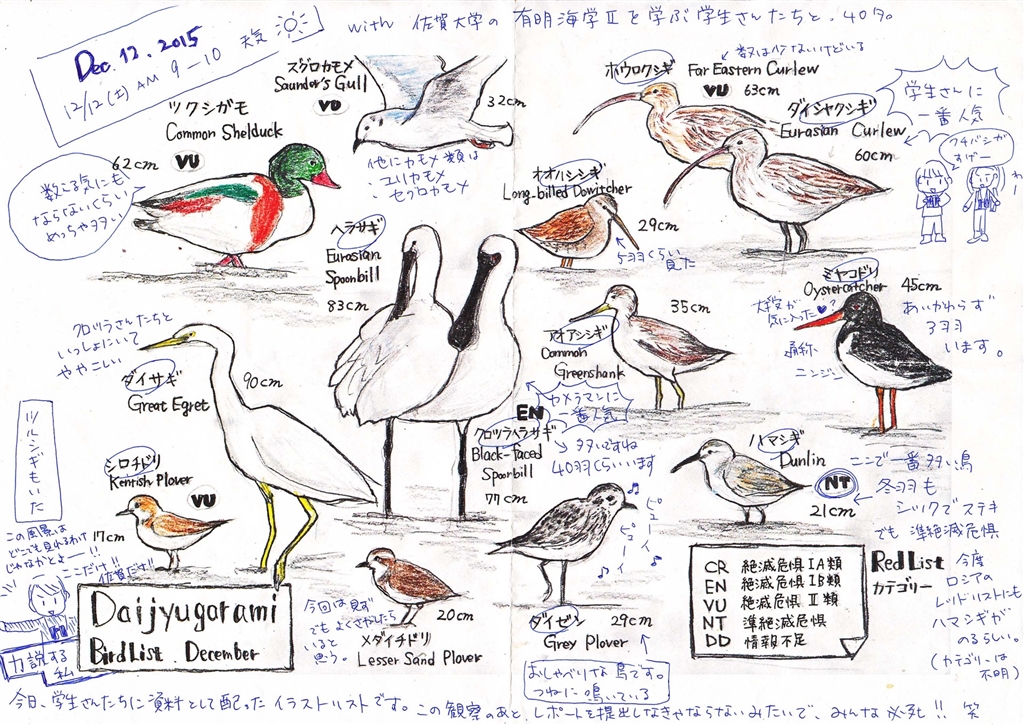 with 佐賀大学の有明海学Ⅱを学ぶ学生さんたちと、40名
Dec. 12. 2015
天気
12/12(土) AM 9-10
ツクシガモ
Common Shelduck
62cm
VU
数える気にも
ならないくらい
めっちゃ多い
ズグロカモメ
Saunder's Gull
VU
32cm
他にカモメ類は
・ユリカモメ
セグロカモメ
ホウロクシギ
数は少ないけどいる
Far Eastern Curlew
VU
63cm
ダイシャクシギ
Eurasian Curlew
60cm
学生さんに
一番人気
クチバシが
すげー
わー
オオハシシギ
Long-billed Dowitcher
29cm
5羽くらい見た
ヘラサギ
Eurasian
Spoonbill
83cm
クロツラさんたちと
いっしょにいて
ややこしい
ダイサギ
90cm
Great Egret
アオアシシギ
Common
Greenshank
35cm
ミヤコドリ
Oystercatcher
45cm
気に入った
通称
ニンジン
あいかわらず
3羽
います。
EN
カメラマンに
一番人気
クロツラヘラサギ
Black-faced
Spoonbill
77cm
多いですね
40羽くらいいます
ハマシギ
Dunlin
NT
21cm
ここで一番多い鳥
冬羽も
シックでステキ
でも準絶滅危惧
今度
ロシアの
レッドリストにも
ハマシギが
のるらしい。
(カテゴリーは
不明)
ツルシギもいた
シロチドリ
Kentish Plover
VU
17cm
この風景は
どこでも見れるわけ
じゃなかとよー!!
ここだけ!!
佐賀だけ!!
力説する
私
Daijyugarami
Bird List December
今回は見ず
でもよくさがしたら
いると
思う。
20cm
メダイチドリ
Lesser Sand Plover
ピューイ
ピューイ
ダイゼン
29cm
Grey Plover
おしゃべりな鳥です。
つねに鳴いている
CR 絶滅危惧ⅠA類
EN 絶滅危惧ⅠB類
VU 絶滅危惧Ⅱ類
NT 準絶滅危惧
DD 情報不足
Red List
カテゴリー
今日、学生さんたちに資料として配ったイラストリストです。この観察のあと、レポートを提出しなきゃならないみたいで、みんな必死!! 笑